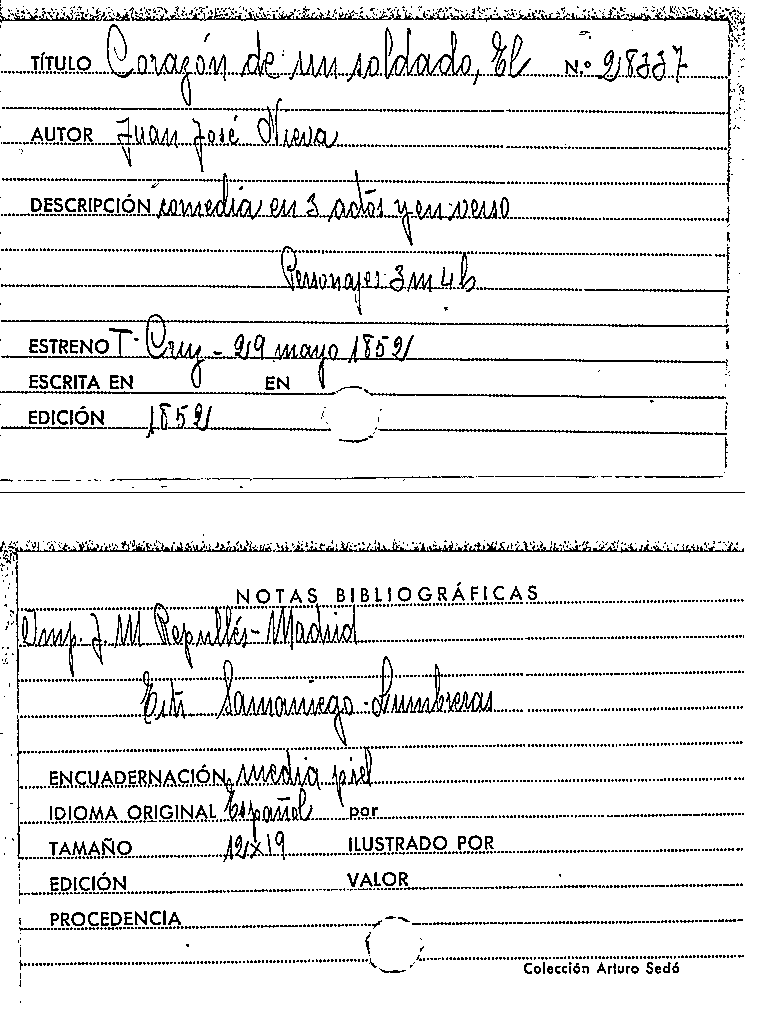 TÍTULO Corazón de un soldado, El N.º 28337
AUTOR Juan José Nieva
DESCRIPCIÓN comedia en 3 actos y en verso
Personajes 3m 4h
ESTRENO T. Cruz - 29 mayo 1852
ESCRITA EN EN
EDICIÓN 1852
NOTAS BIBLIOGRÁFICAS
Imp. J. M Repullés - Madrid
Samaniego - Lumbreras
ENCUADERNACIÓN media piel
IDIOMA ORIGINAL Español por
TAMAÑO 12x19 ILUSTRADO POR
EDICIÓN VALOR
PROCEDENCIA
Colección Arturo Sedó